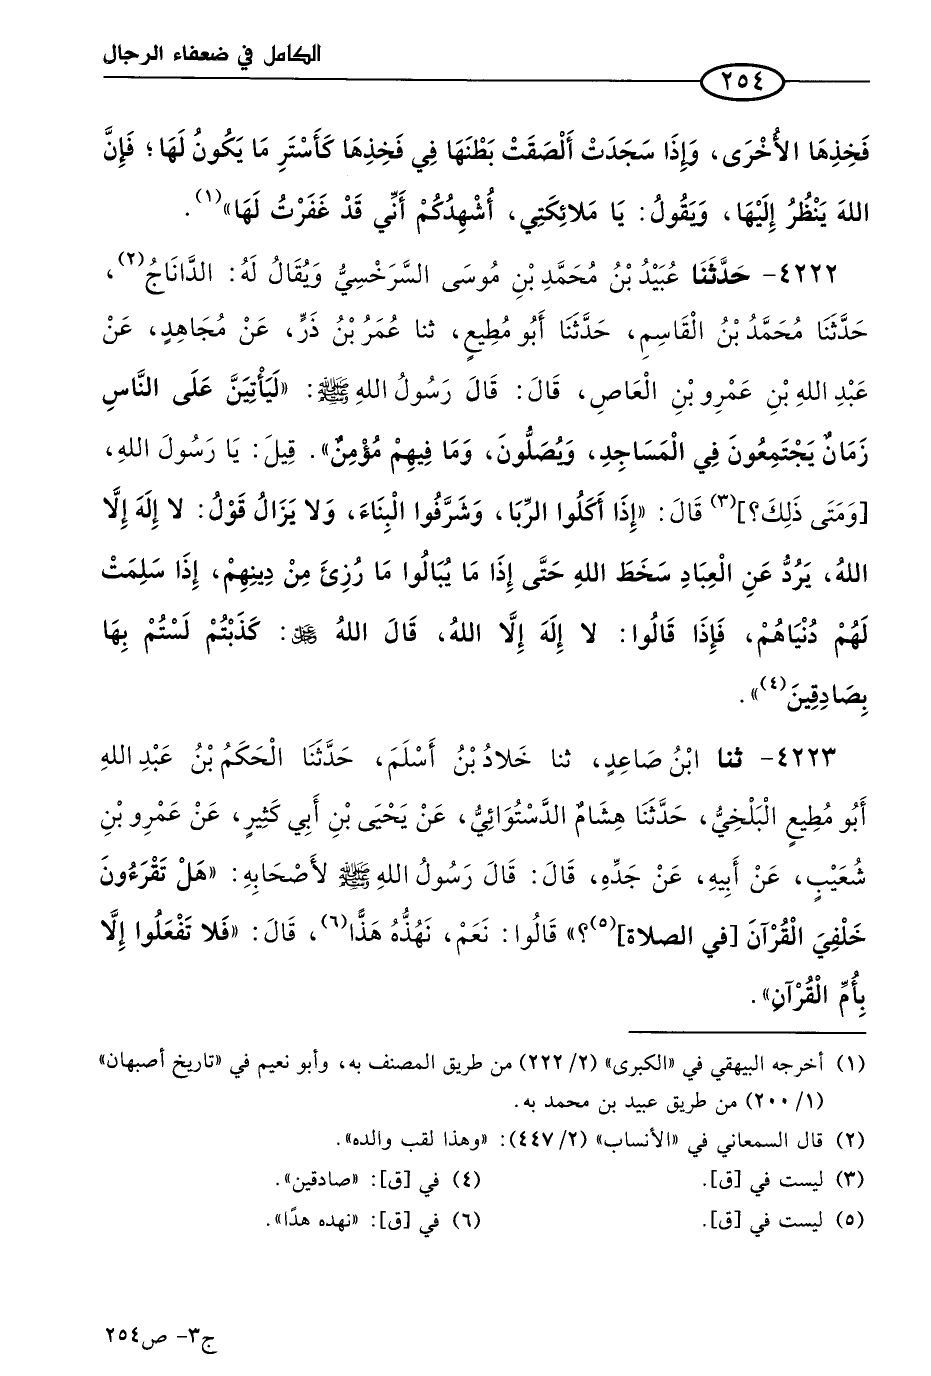 الكامل في ضعفاء الرجال
٢٥٤
فَخِذِهَا الأُخْرَى، وَإِذَا سَجَدَتْ أَلْصَقَتْ بَطْنَهَا فِي فَخِذِهَا كَأَسْتَرِ مَا يَكُونُ لَهَا؛ فَإِنَّ
اللهَ يَنْظُرُ إِلَيْهَا، وَيَقُولُ: يَا مَلائِكَتِي، أُشْهِدُكُمْ أَنِّي قَدْ غَفَرْتُ لَهَا»(١).
٤٢٢٢- حَدَّثَنَا عُبَيْدُ بْنُ مُحَمَّدِ بْنِ مُوسَى السَّرَخْسِيُّ وَيُقَالُ لَهُ: الدَّانَاجُ(٢)،
حَدَّثَنَا مُحَمَّدُ بْنُ الْقَاسِمِ، حَدَّثَنَا أَبُو مُطِيعٍ، ثنا عُمَرُ بْنُ ذَرٍّ، عَنْ مُجَاهِدٍ، عَنْ
عَبْدِ اللهِ بْنِ عَمْرِو بْنِ الْعَاصِ، قَالَ: قَالَ رَسُولُ اللهِ ﷺ: «لَيَأْتِيَنَّ عَلَى النَّاسِ
زَمَانٌ يَجْتَمِعُونَ فِي الْمَسَاجِدِ، وَيُصَلُّونَ، وَمَا فِيهِمْ مُؤْمِنٌ». قِيلَ: يَا رَسُولَ اللهِ،
[وَمَتَى ذَلِكَ؟](٣) قَالَ: «إِذَا أَكَلُوا الرِّبَا، وَشَرَّفُوا الْبِنَاءَ، وَلا يَزَالُ قَوْلُ: لا إِلَهَ إِلَّا
اللهُ، يَرُدُّ عَنِ الْعِبَادِ سَخَطَ اللهِ حَتَّى إِذَا مَا يُبَالُوا مَا رُزِئَ مِنْ دِينِهِمْ، إِذَا سَلِمَتْ
لَهُمْ دُنْيَاهُمْ، فَإِذَا قَالُوا: لا إِلَهَ إِلَّا اللهُ، قَالَ اللهُ ﷻ: كَذَبْتُمْ لَسْتُمْ بِهَا
بِصَادِقِينَ(٤)».
٤٢٢٣- ثنا ابْنُ صَاعِدٍ، ثنا خَلادُ بْنُ أَسْلَمَ، حَدَّثَنَا الْحَكَمُ بْنُ عَبْدِ اللهِ
أَبُو مُطِيعٍ الْبَلْخِيُّ، حَدَّثَنَا هِشَامٌ الدَّسْتُوَائِيُّ، عَنْ يَحْيَى بْنِ أَبِي كَثِيرٍ، عَنْ عَمْرِو بْنِ
شُعَيْبٍ، عَنْ أَبِيهِ، عَنْ جَدِّهِ، قَالَ: قَالَ رَسُولُ اللهِ ﷺ لأَصْحَابِهِ: «هَلْ تَقْرَءُونَ
خَلْفِيَ الْقُرْآنَ [في الصلاة](٥)؟» قَالُوا: نَعَمْ، نَهُذُّهُ هَذًّا(٦)، قَالَ: «فَلا تَفْعَلُوا إِلَّا
بِأُمِّ الْقُرْآنِ».
(١) أخرجه البيهقي في «الكبرى» (٢/ ٢٢٢) من طريق المصنف به، وأبو نعيم في «تاريخ أصبهان»
(١/ ٢٠٠) من طريق عبيد بن محمد به.
(٢) قال السمعاني في «الأنساب» (٢/ ٤٤٧): «وهذا لقب والده».
(٣) ليست في [ق]. (٤) في [ق]: «صادقين».
(٥) ليست في [ق]. (٦) في [ق]: «نهده هدًا».
ج٣- ص٢٥٤